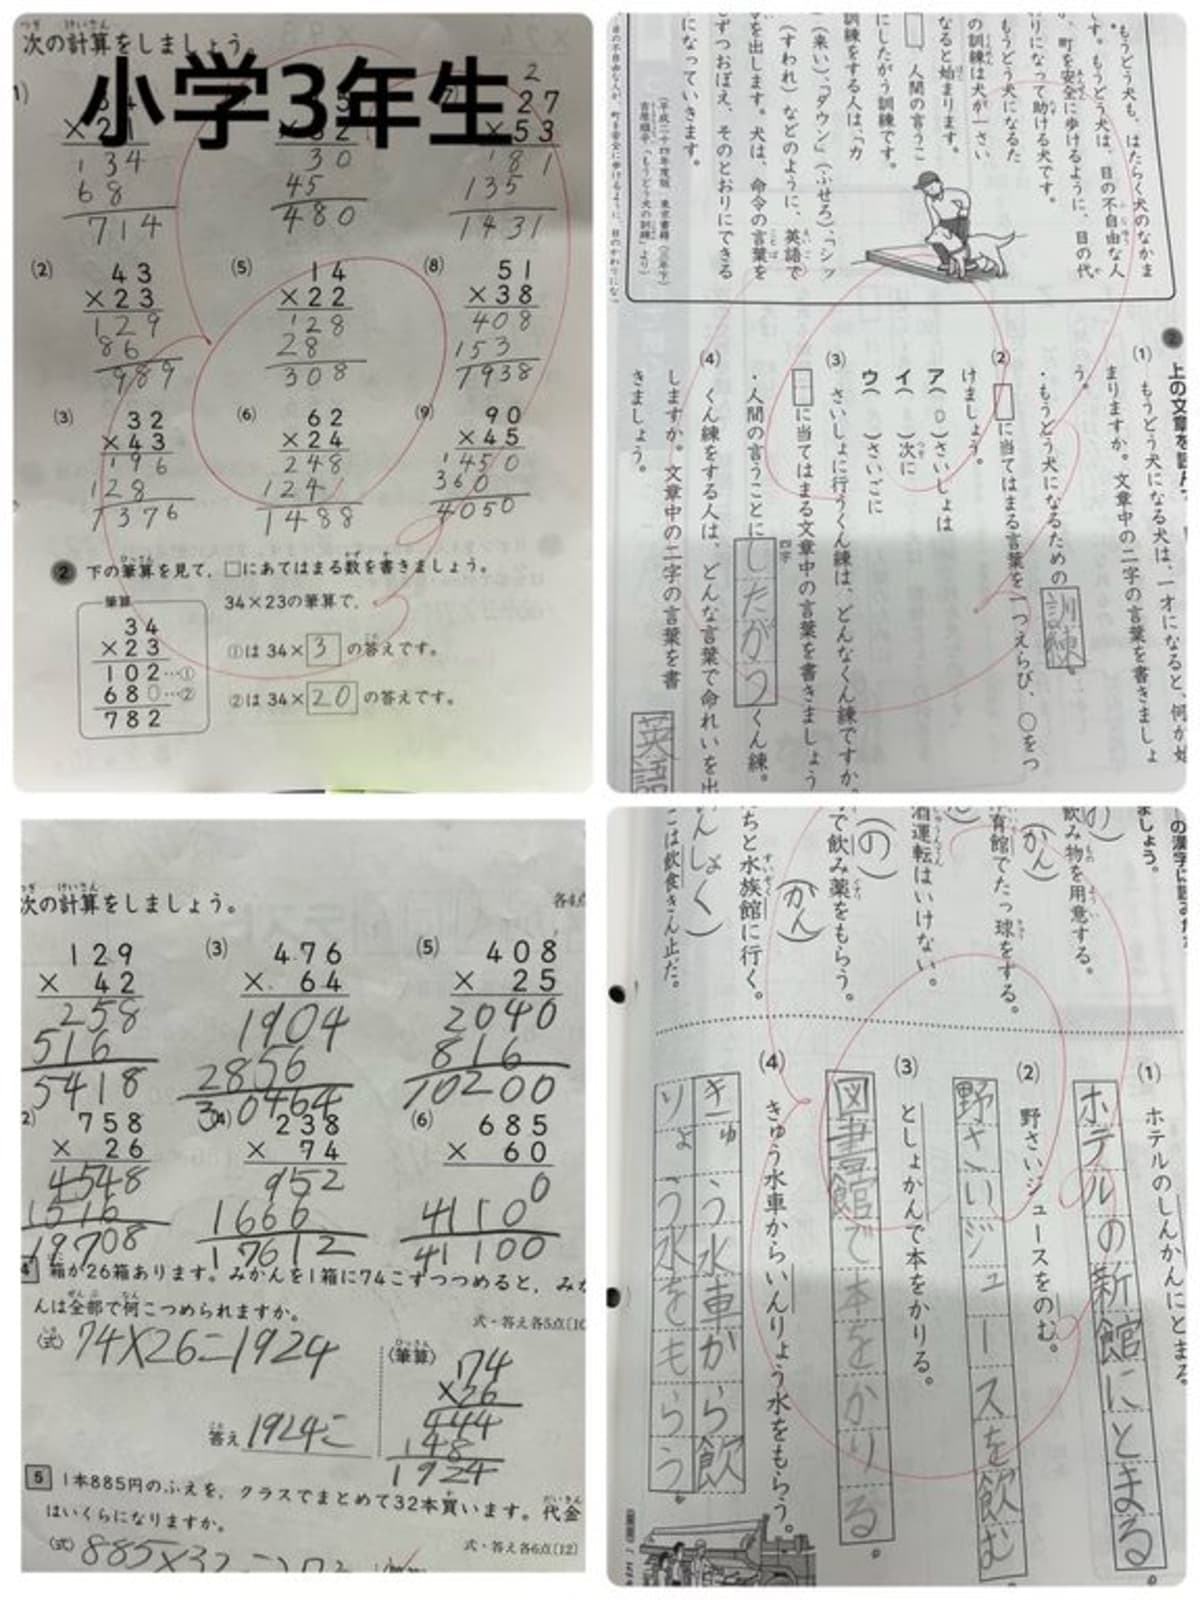 小学3年生
次の計算をしましょう。
27
×53
181
135
1431
30
45
480
134
68
714
(2)
43
×23
129
86
989
(5)
14
×22
128
28
308
(8)
51
×38
408
153
1938
(3)
32
×43
196
128
1376
(6)
62
×24
248
124
1488
(9)
90
×45
1450
360
4050
2 下の筆算を見て、□にあてはまる数を書きましょう。
筆算
34
×23
102…①
680…②
782
34×23の筆算で、
①は 34×3の答えです。
②は 34×20の答えです。
もうどう犬も、はたらく犬のなかま
です。もうどう犬は、目の不自由な人
が、町を安全に歩けるように、目の代
わりになって助ける犬です。
もうどう犬になるた
の訓練は犬が一さい
なると始まります。
□、人間の言うこ
にしたがう訓練です。
訓練をする人は、「カ
(来い)、「ダウン」(ふせろ)、「シッ
(すわれ)などのように、英語で
を出します。犬は、命令の言葉を
ずつおぼえ、そのとおりにできる
になっていきます。
(平成二十四年度版 東京書籍(三年下)
吉原順平「もうどう犬の訓練」より)
2 上の文章を読んで、
(1) もうどう犬になる犬は、一才になると、何が始
まりますか。文章中の二字の言葉を書きましょ
う。
・もうどう犬になるための訓練。
(2) □に当てはまる言葉を一つえらび、○をつ
けましょう。
ア(○)さいしょは
イ( )次に
ウ( )さいごに
(3) さいしょに行うくん練は、どんなくん練ですか。
□に当てはまる文章中の言葉を書きましょう
・人間の言うことにしたがうくん練。
四字
(4) くん練をする人は、どんな言葉で命れいを出
しますか。文章中の二字の言葉を書
きましょう。
英語
次の計算をしましょう。
各4点
129
× 42
258
516
5418
(3)
476
× 64
1904
2856
30464
(5)
408
× 25
2040
816
10200
758
× 26
4548
1516
19708
(4)
238
× 74
952
1666
17612
(6)
685
× 60
0
4110
41100
4 箱が26箱あります。みかんを1箱に74こずつつめると、みか
んは全部で何こつめられますか。
式・答え各5点[10
(式) 74×26=1924
答え 1924こ
(筆算)
74
×26
444
148
1924
5 1本885円のふえを、クラスでまとめて32本買います。代金
はいくらになりますか。
式・答え各6点[12]
(式) 885×32=
ましょう。
飲み物を用意する。
(かん)
育館でたっ球をする。
酒運転はいけない。
(の)
で飲み薬をもらう。
(かん)
ちと水族館に行く。
んしょく)
こは飲食きん止だ。
(1) ホテルのしんかんにとまる。
ホテルの新館にとまる。
(2) 野さいジュースをのむ。
野さいジュースを飲む。
(3) としょかんで本をかりる。
図書館で本をかりる。
(4) きゅう水車からいんりょう水をもらう。
きゅう水車から飲
りょう水をもらう。